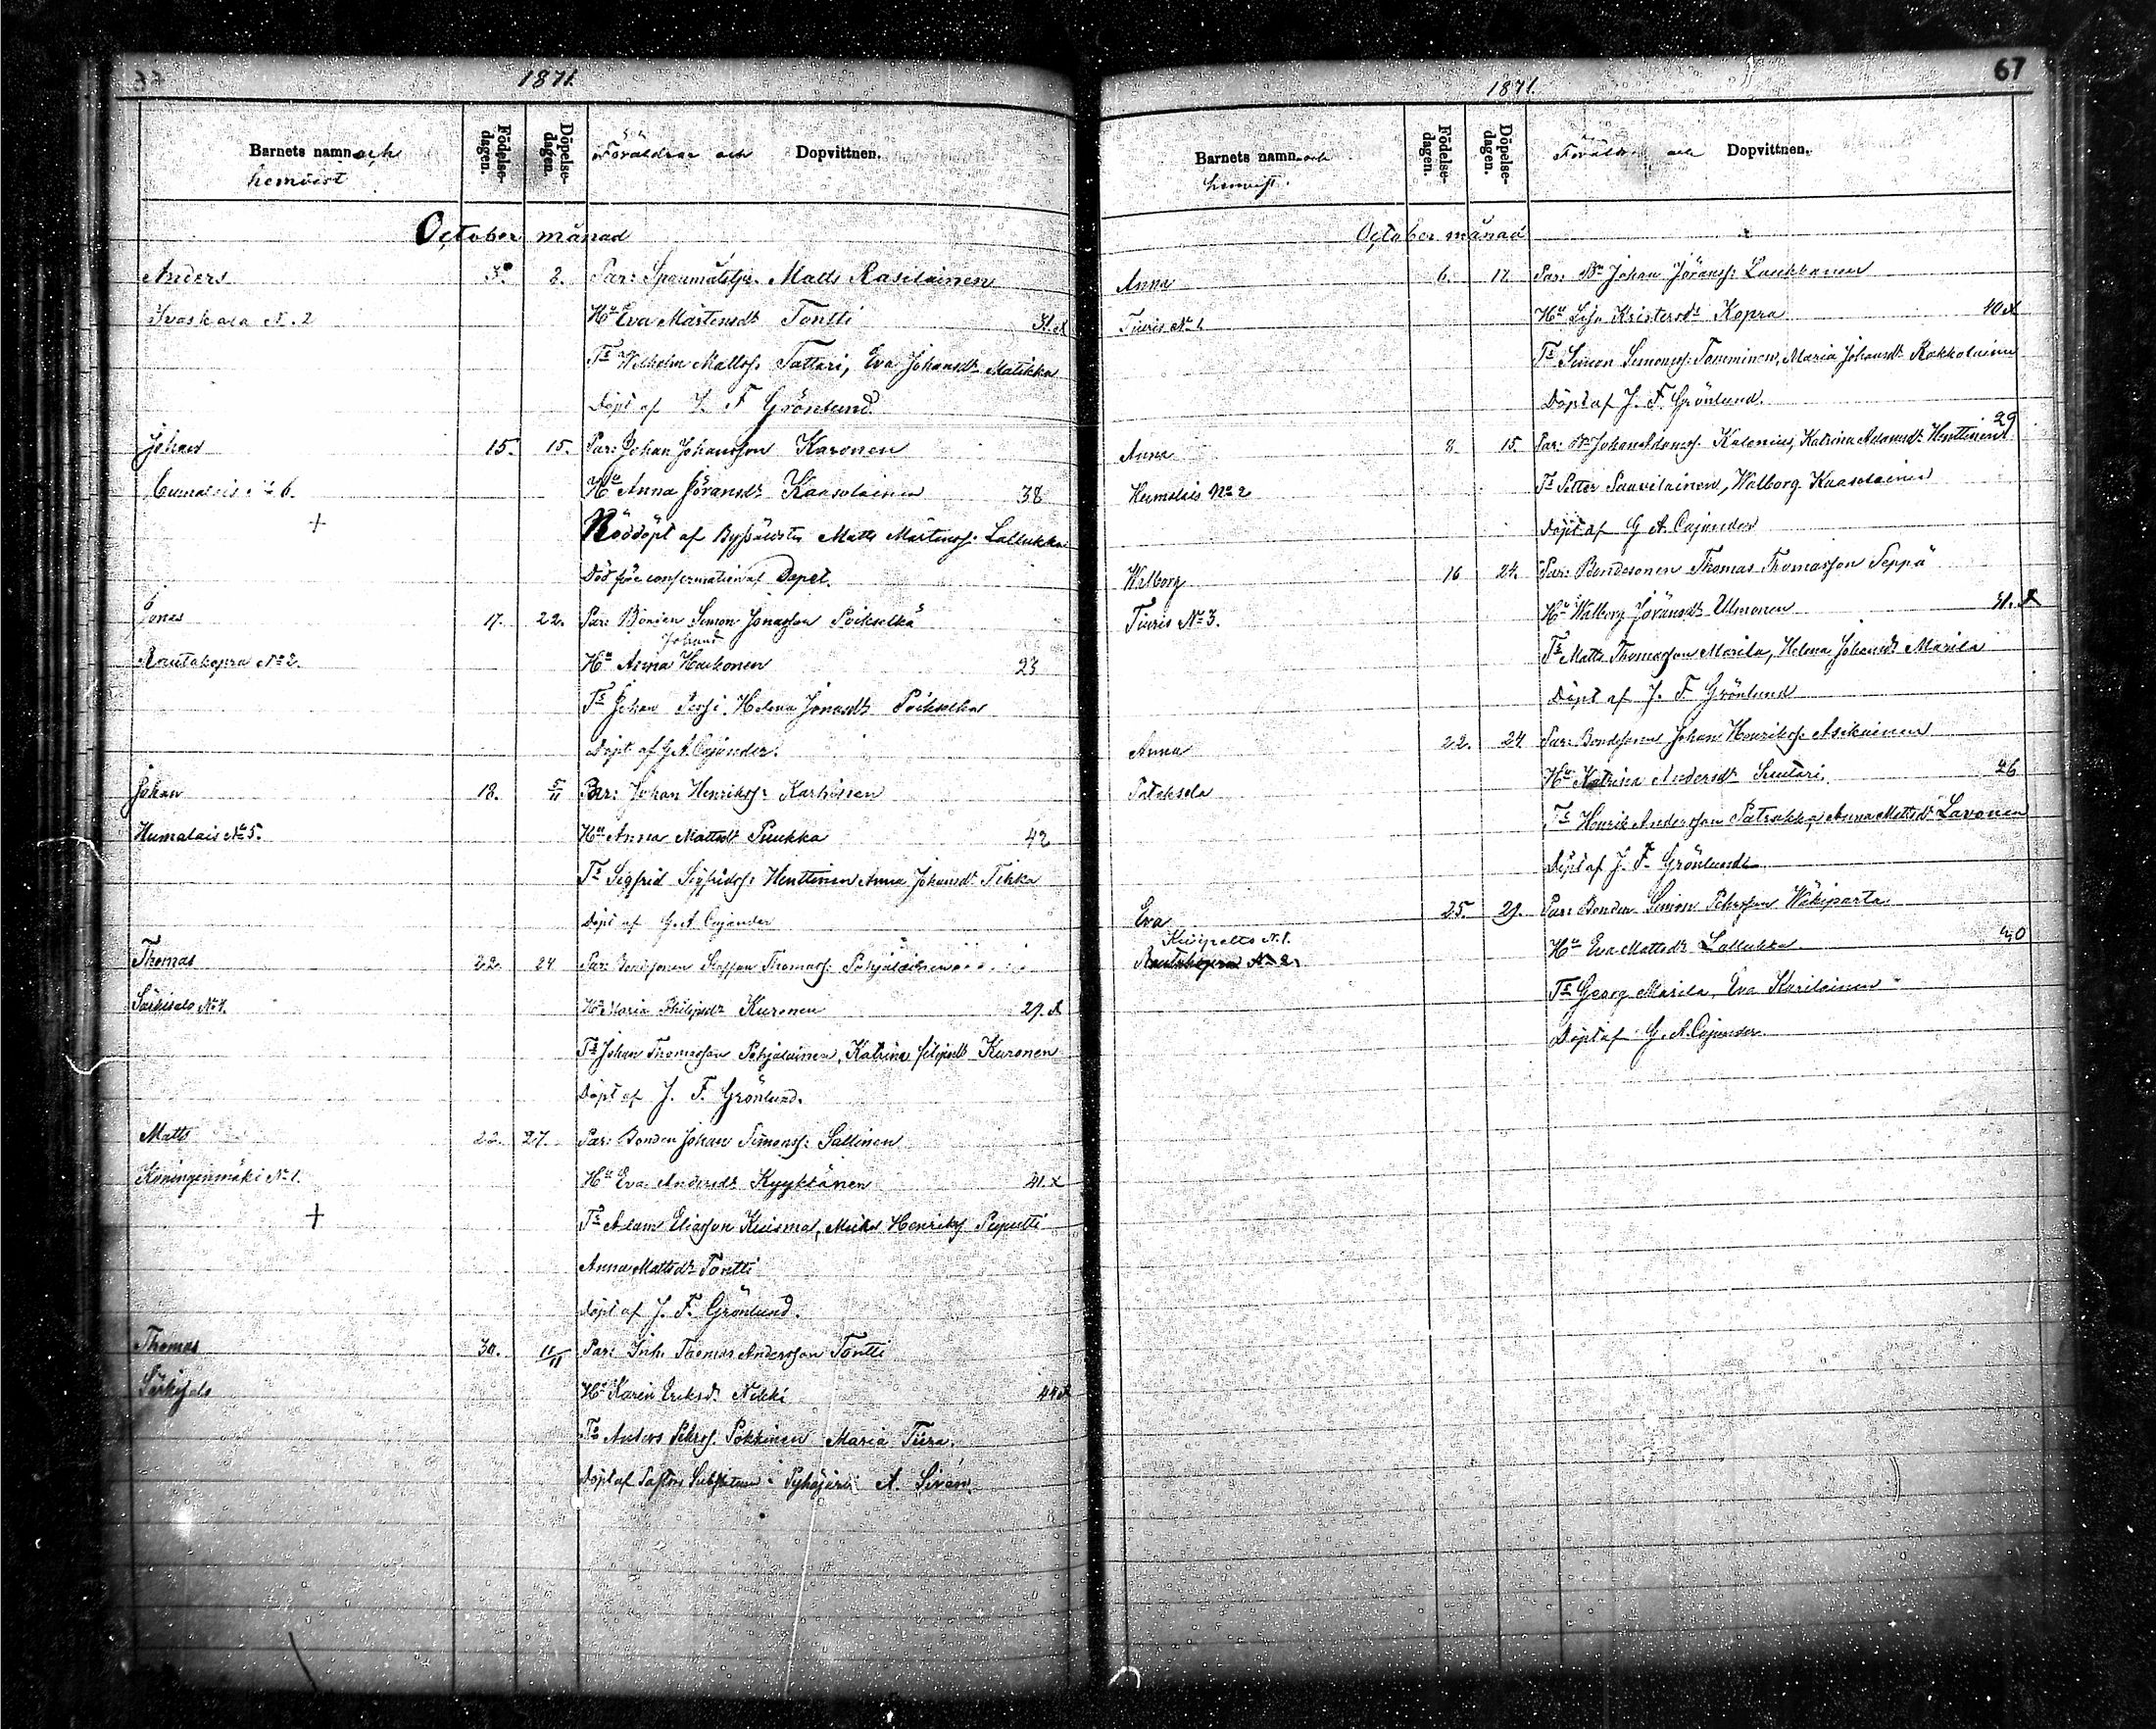 1871.
Barnets namn och
hemvist
Födelse-
dagen.
Döpelse-
dagen.
Föräldrar och Dopvittnen.
October månad
Anders 3. 8. Par: Matts Rasilainen
N. 2 Hu Eva Mårtensdr Tontti
Ts Wilhelm Mattss. Tattari, Eva Johansdr Matikka
Döpt af J. F Grönlund.
Johan 15. 15. Par: Johan Johansson Karonen
No 6. Hu Anna Göransdr Kaasolainen 38
+
Nöddöpt af Matts Mårtenss. Lallukka
Död före confirmation af Dopet.
Jonas 17. 22. Par: Bonden Simon Jonasson Pöikselkä
Johansd
Rautakopra No 2. Hu Anna Haikonen 23
Ts Johan Helena Jonasdr Pöikselkä
Döpt af G A. Cajander.
Johan 18. 5/11 Par: Johan Henrikss: Karhinen
Humalais No 5. Hu Anna Mattsdr Puukka 42
Ts Sigfrid Sigfridss. Henttinen Anna Johansdr Tikka
Döpt af G. A Cajander
Thomas 22. 24 Par: Bondsonen Staffan Thomass: Pohjalainen
No 4. Hu Maria Philipsdr Kuronen 29. x
Ts Johan Thomasson Pohjalainen, Katrina Filipsdr Kuronen
Döpt af J. F. Grönlund.
Matts 22. 27. Par: Bonden Johan Simonss: Sallinen
Köningenmäki No 1. Hu Eva Andersdr Kyykkänen 41. x
+
Ts Adam Eliasson Kuisma, Henrikss Puputti
Anna Mattsdr Tontti
Döpt af J. F. Grönlund.
Thomas 30. 11/11 Par: Inh. Thomas Andersson Tontti
Särkisalo Hu Karin Eriksdr Nikki 44 x
Ts Anders Pehrss. Pokkinen Maria Tiira.
Döpt af Pastors Substituten i Pyhäjärvi A. Sirén.
67
1871.
Barnets namn och
hemvist.
Födelse-
dagen.
Döpelse-
dagen.
Föräldrar och Dopvittnen.
October månad
Anna 6. 12. Par: Bn Johan Göranss: Laukkanen
Tiuris No 1. Hu Lisa Kristersdr Kopra 40 x
Ts Simon Simonss. Tamminen, Maria Johansdr Rokkolainen
Döpt af J. F. Grönlund.
29
Anna 8. 15. Par: Bn Johan Adamss. Katrina Adamsdr Henttinen
Humalais No 2 Ts Petter Saavilainen, Walborg Kaasolainen
Döpt af G A. Cajander
Walborg 16 24. Par: Bondesonen Thomas Thomasson Seppä
Tiuris No 3. Hu Walborg Göransdr Ulmonen 31. x
Ts Matts Thomasson Marila, Helena Johansdr Marila
Döpt af J. F Grönlund
Anna 22. 24 Par: Bondsonen Johan Henrikss. Asikainen
Hu Katrina Andersdr Suutari 26
Ts Henrik Andersson Patrakka, Anna Mattsdr Lavonen
Döpt af J. F. Grönlund
Eva 25. 29. Par: Bonden Simon Pehrsson Wäkiparta
Kivipelto N. 1.
Rautakopra No 2. Hu Eva Mattsdr Lallukka 40
Ts Georg Marila, Eva Karilainen
Döpt af G. A. Cajander